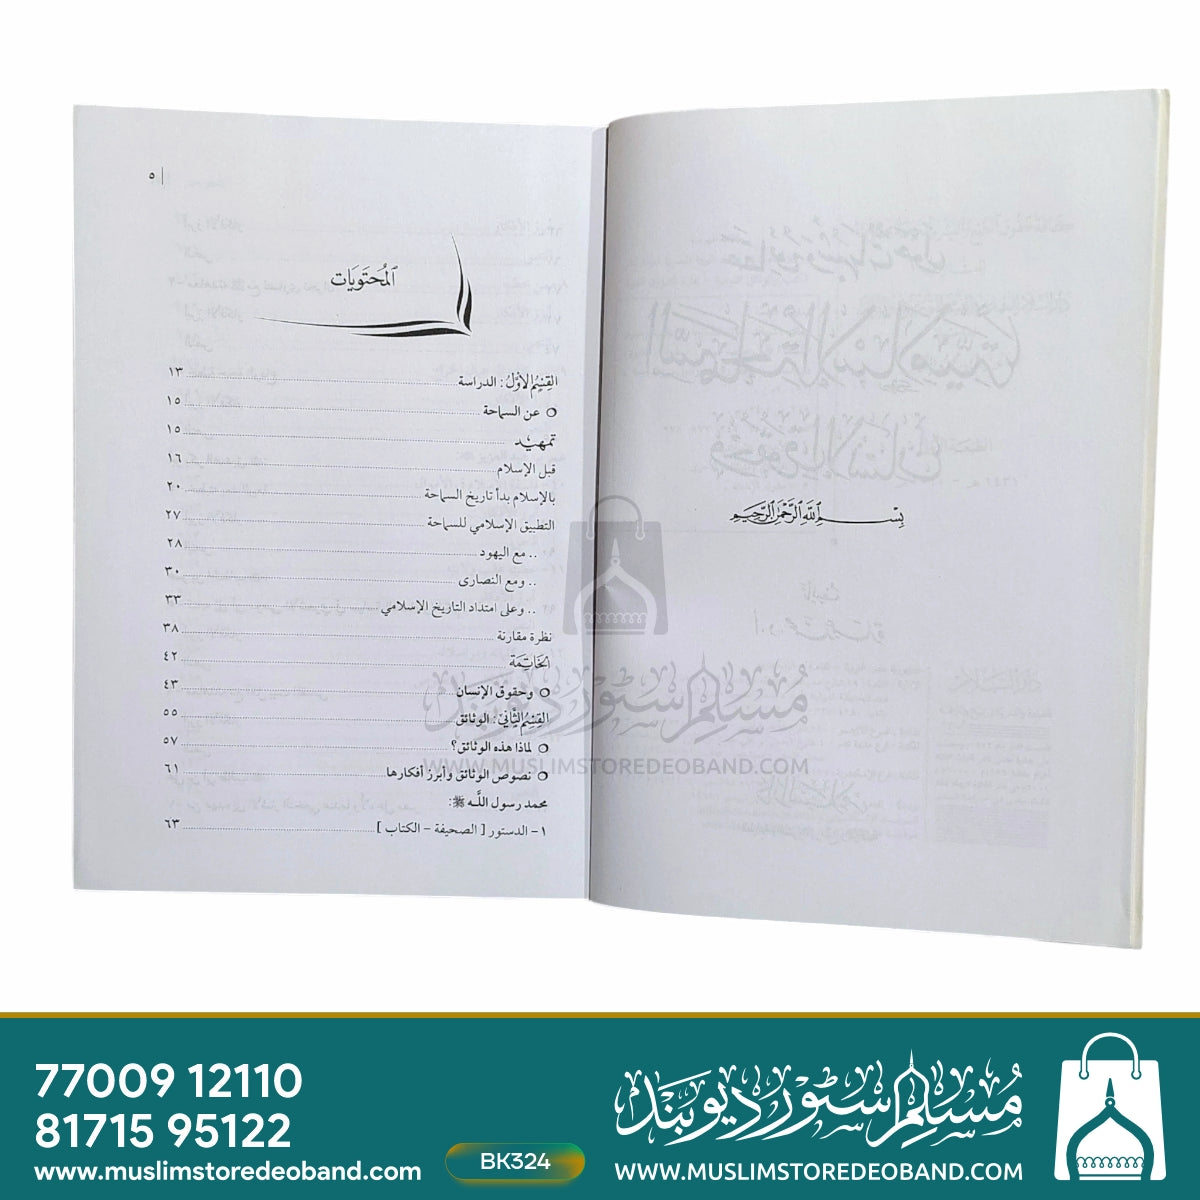 بِسْمِ اللَّهِ الرَّحْمَٰنِ الرَّحِيمِ
٥
المُحتَوَيَات
القِسْمُ الأَوَّلُ: الدراسة ١٣
عن السماحة ١٥
تمهيد ١٥
قبل الإسلام ١٦
بالإسلام بدأ تاريخ السماحة ٢٠
التطبيق الإسلامي للسماحة ٢٧
.. مع اليهود ٢٨
.. ومع النصارى ٣٠
.. وعلى امتداد التاريخ الإسلامي ٣٣
نظرة مقارنة ٣٨
الخَاتِمَة ٤٢
وحقوق الإنسان ٤٣
القِسْمُ الثَّانِي: الوثائق ٥٥
لماذا هذه الوثائق؟ ٥٧
نصوص الوثائق وأبرز أفكارها ٦١
محمد رسول اللَّه ﷺ:
١- الدستور [ الصحيفة - الكتاب ] ٦٣
مسلم سٹور دیوبند
WWW.MUSLIMSTOREDEOBAND.COM
77009 12110
81715 95122
www.muslimstoredeoband.com
BK324
مسلم سٹور دیوبند
WWW.MUSLIMSTOREDEOBAND.COM